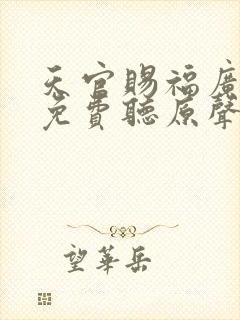 天官賜福廣
免費聽原聲
望華岳